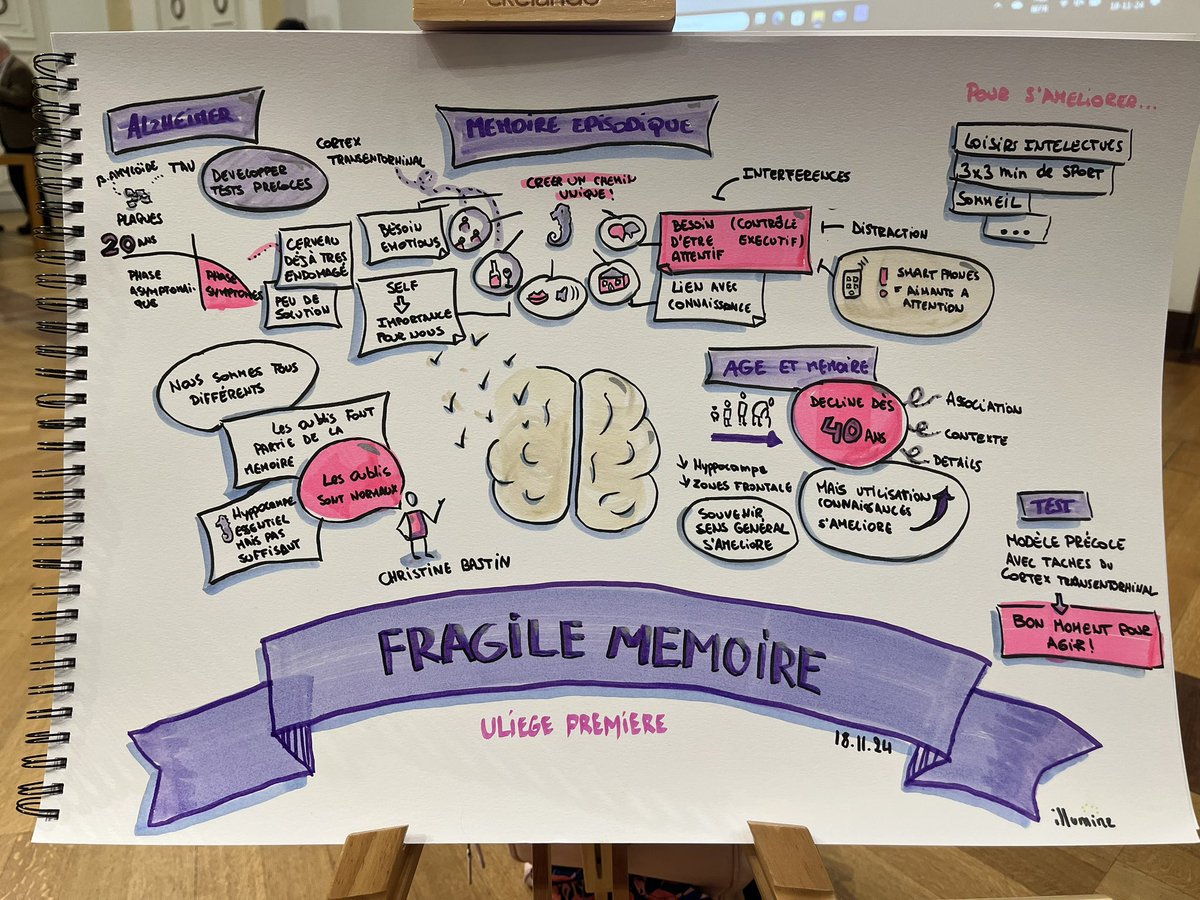 ekelando
18-11-24
ALZHEIMER
β AMYLOÏDE
TAU
PLAQUES
DEVELOPPER
TESTS PRECOCES
20 ANS
PHASE
ASYMPTOMATI-
QUE
PHASE
SYMPTOMES
CERVEAU
DÉJÀ TRES
ENDOMAGÉ
PEU DE
SOLUTION
MEMOIRE EPISODIQUE
CORTEX
TRANSENTORHINAL
CREER UN CHEMIN
UNIQUE!
BESOIN
EMOTIONS
SELF
IMPORTANCE
POUR NOUS
INTERFERENCES
BESOIN (CONTRÔLE
D'ETRE EXECUTIF)
ATTENTIF
LIEN AVEC
CONNAISSANCE
DISTRACTION
SMART PHONES
= AIMANTS A
ATTENTION
POUR S'AMELIORER...
LOISIRS INTELECTUES
3x3 min DE SPORT
SOMMEIL
...
NOUS SOMMES TOUS
DIFFÉRENTS
LES OUBLIS FONT
PARTIE DE LA
MEMOIRE
LES OUBLIS
SONT NORMAUX
HYPPOCAMPE
ESSENTIEL
MAIS PAS
SUFFISANT
CHRISTINE BASTIN
AGE ET MEMOIRE
DECLINE DÈS
40 ANS
ASSOCIATION
CONTEXTE
DETAILS
↘ HYPPOCAMPE
↘ ZONES FRONTALE
SOUVENIR
SENS GÉNÉRAL
S'AMELIORE
MAIS UTILISATION
CONNAISSANCES
S'AMELIORE
TEST
MODÈLE PRÉCOLE
AVEC TACHES DU
CORTEX TRANSENTORHINAL
BON MOMENT POUR
AGIR!
FRAGILE MEMOIRE
ULIEGE PREMIERE
18.11.24
illumine